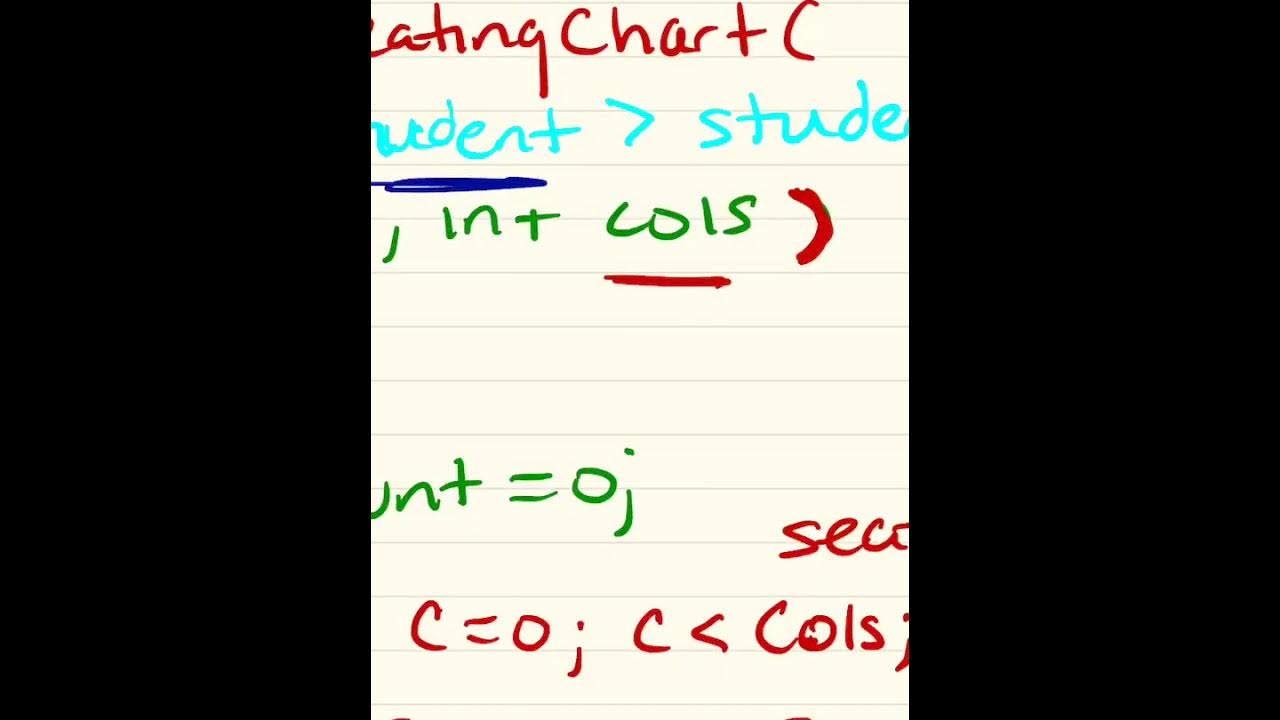 eatingChart(
udent > stude
, int cols )
unt = 0;
seco
c = 0; c < Cols;